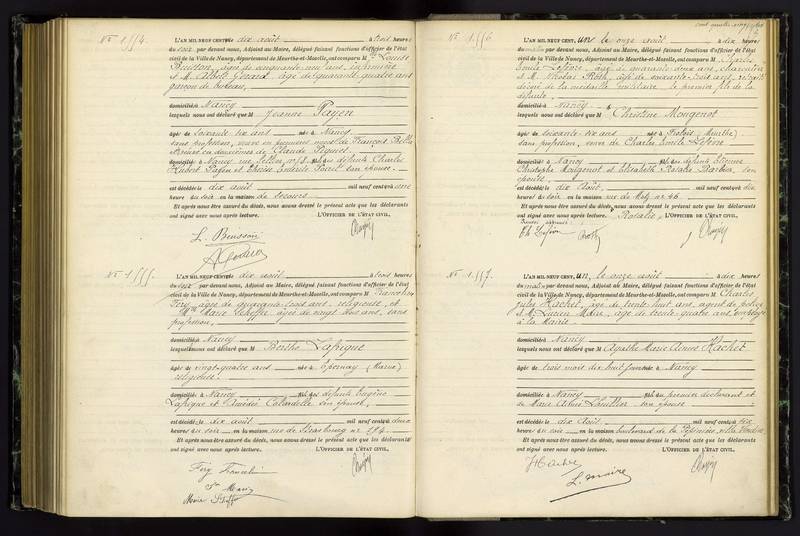 N° 1554.
L'AN MIL NEUF CENT, dix août à trois heures
du soir par devant nous, Adjoint au Maire, délégué faisant fonctions d'officier de l'état
civil de la Ville de Nancy, département de Meurthe-et-Moselle, ont comparu M Louise
Buisson, âgée de cinquante
et M. Albert Gérard, âgé de quarante quatre ans
garçon de bureau,
domiciliés à Nancy
lesquels nous ont déclaré que M Jeanne Payen
âgée de soixante six ans née à Nancy
sans profession, veuve en premières noces de François
en deuxièmes de Claude
domiciliée à Nancy rue fille des défunts Charles
Hubert Payen et son épouse.
est décédée le dix août mil neuf cent, à une
heure du soir en la maison de secours
Et après nous être assuré du décès, nous avons dressé le présent acte que les déclarants
ont signé avec nous après lecture. L'OFFICIER DE L'ÉTAT CIVIL,
L. Buisson
A Gérard
N° 1555.
L'AN MIL NEUF CENT, dix août à trois heures
du soir par devant nous, Adjoint au Maire, délégué faisant fonctions d'officier de l'état
civil de la Ville de Nancy, département de Meurthe-et-Moselle, ont comparu M
Fery, âgée de quarante trois ans, religieuse, et
Marie âgée de vingt trois ans, sans
profession,
domiciliées à Nancy
lesquelles nous ont déclaré que M Berthe Lafrique
âgée de vingt quatre ans née à Epernay (Marne)
religieuse.
domiciliée à Nancy fille des défunts Eugène
Lafrique et son épouse,
est décédée le dix août mil neuf cent, à deux
heures du soir en la maison rue de Strasbourg n°
Et après nous être assuré du décès, nous avons dressé le présent acte que les déclarants
ont signé avec nous après lecture. L'OFFICIER DE L'ÉTAT CIVIL,
Fery
Marie
N° 1556
L'AN MIL NEUF CENT, un le onze août à dix heures
du matin par devant nous, Adjoint au Maire, délégué faisant fonctions d'officier de l'état
civil de la Ville de Nancy, département de Meurthe-et-Moselle, ont comparu M Charles
Emile Lefèvre, âgé de quarante deux ans,
et M. Nicolas Roth, âgé de soixante trois ans, retraité
décoré de la médaille militaire, le premier fils de la
défunte.
domiciliés à Nancy
lesquels nous ont déclaré que M Christine Mougenot
âgée de soixante six ans née à (Meurthe).
sans profession, veuve de Charles Emile Lefèvre
domiciliée à Nancy fille des défunts Etienne
Christophe Mougenot et Elisabeth Rosalie Barbier, son
épouse,
est décédée le dix Août, mil neuf cent, à dix
heures du soir en la maison rue de Metz n° 46.
Et après nous être assuré du décès, nous avons dressé le présent acte que les déclarants
ont signé avec nous après lecture. Rosalie L'OFFICIER DE L'ÉTAT CIVIL,
Roth
N° 1557.
L'AN MIL NEUF CENT, un, le onze août à dix heures
du matin par devant nous, Adjoint au Maire, délégué faisant fonctions d'officier de l'état
civil de la Ville de Nancy, département de Meurthe-et-Moselle, ont comparu M Charles
Jules Hachet, âgé de trente huit ans, agent de police
et M. Lucien Maire, âgé de trente-quatre ans employé
à la Mairie
domiciliés à Nancy
lesquels nous ont déclaré que M Agathe Marie Aimée Hachet
âgée de trois mois dix huit jours née à Nancy
domiciliée à Nancy fille du premier déclarant et
de Marie son épouse
est décédée le dix Août mil neuf cent, à six
heures du soir en la maison boulevard de la Pépinière,
Et après nous être assuré du décès, nous avons dressé le présent acte que les déclarants
ont signé avec nous après lecture. L'OFFICIER DE L'ÉTAT CIVIL,
Hachet
L. Maire